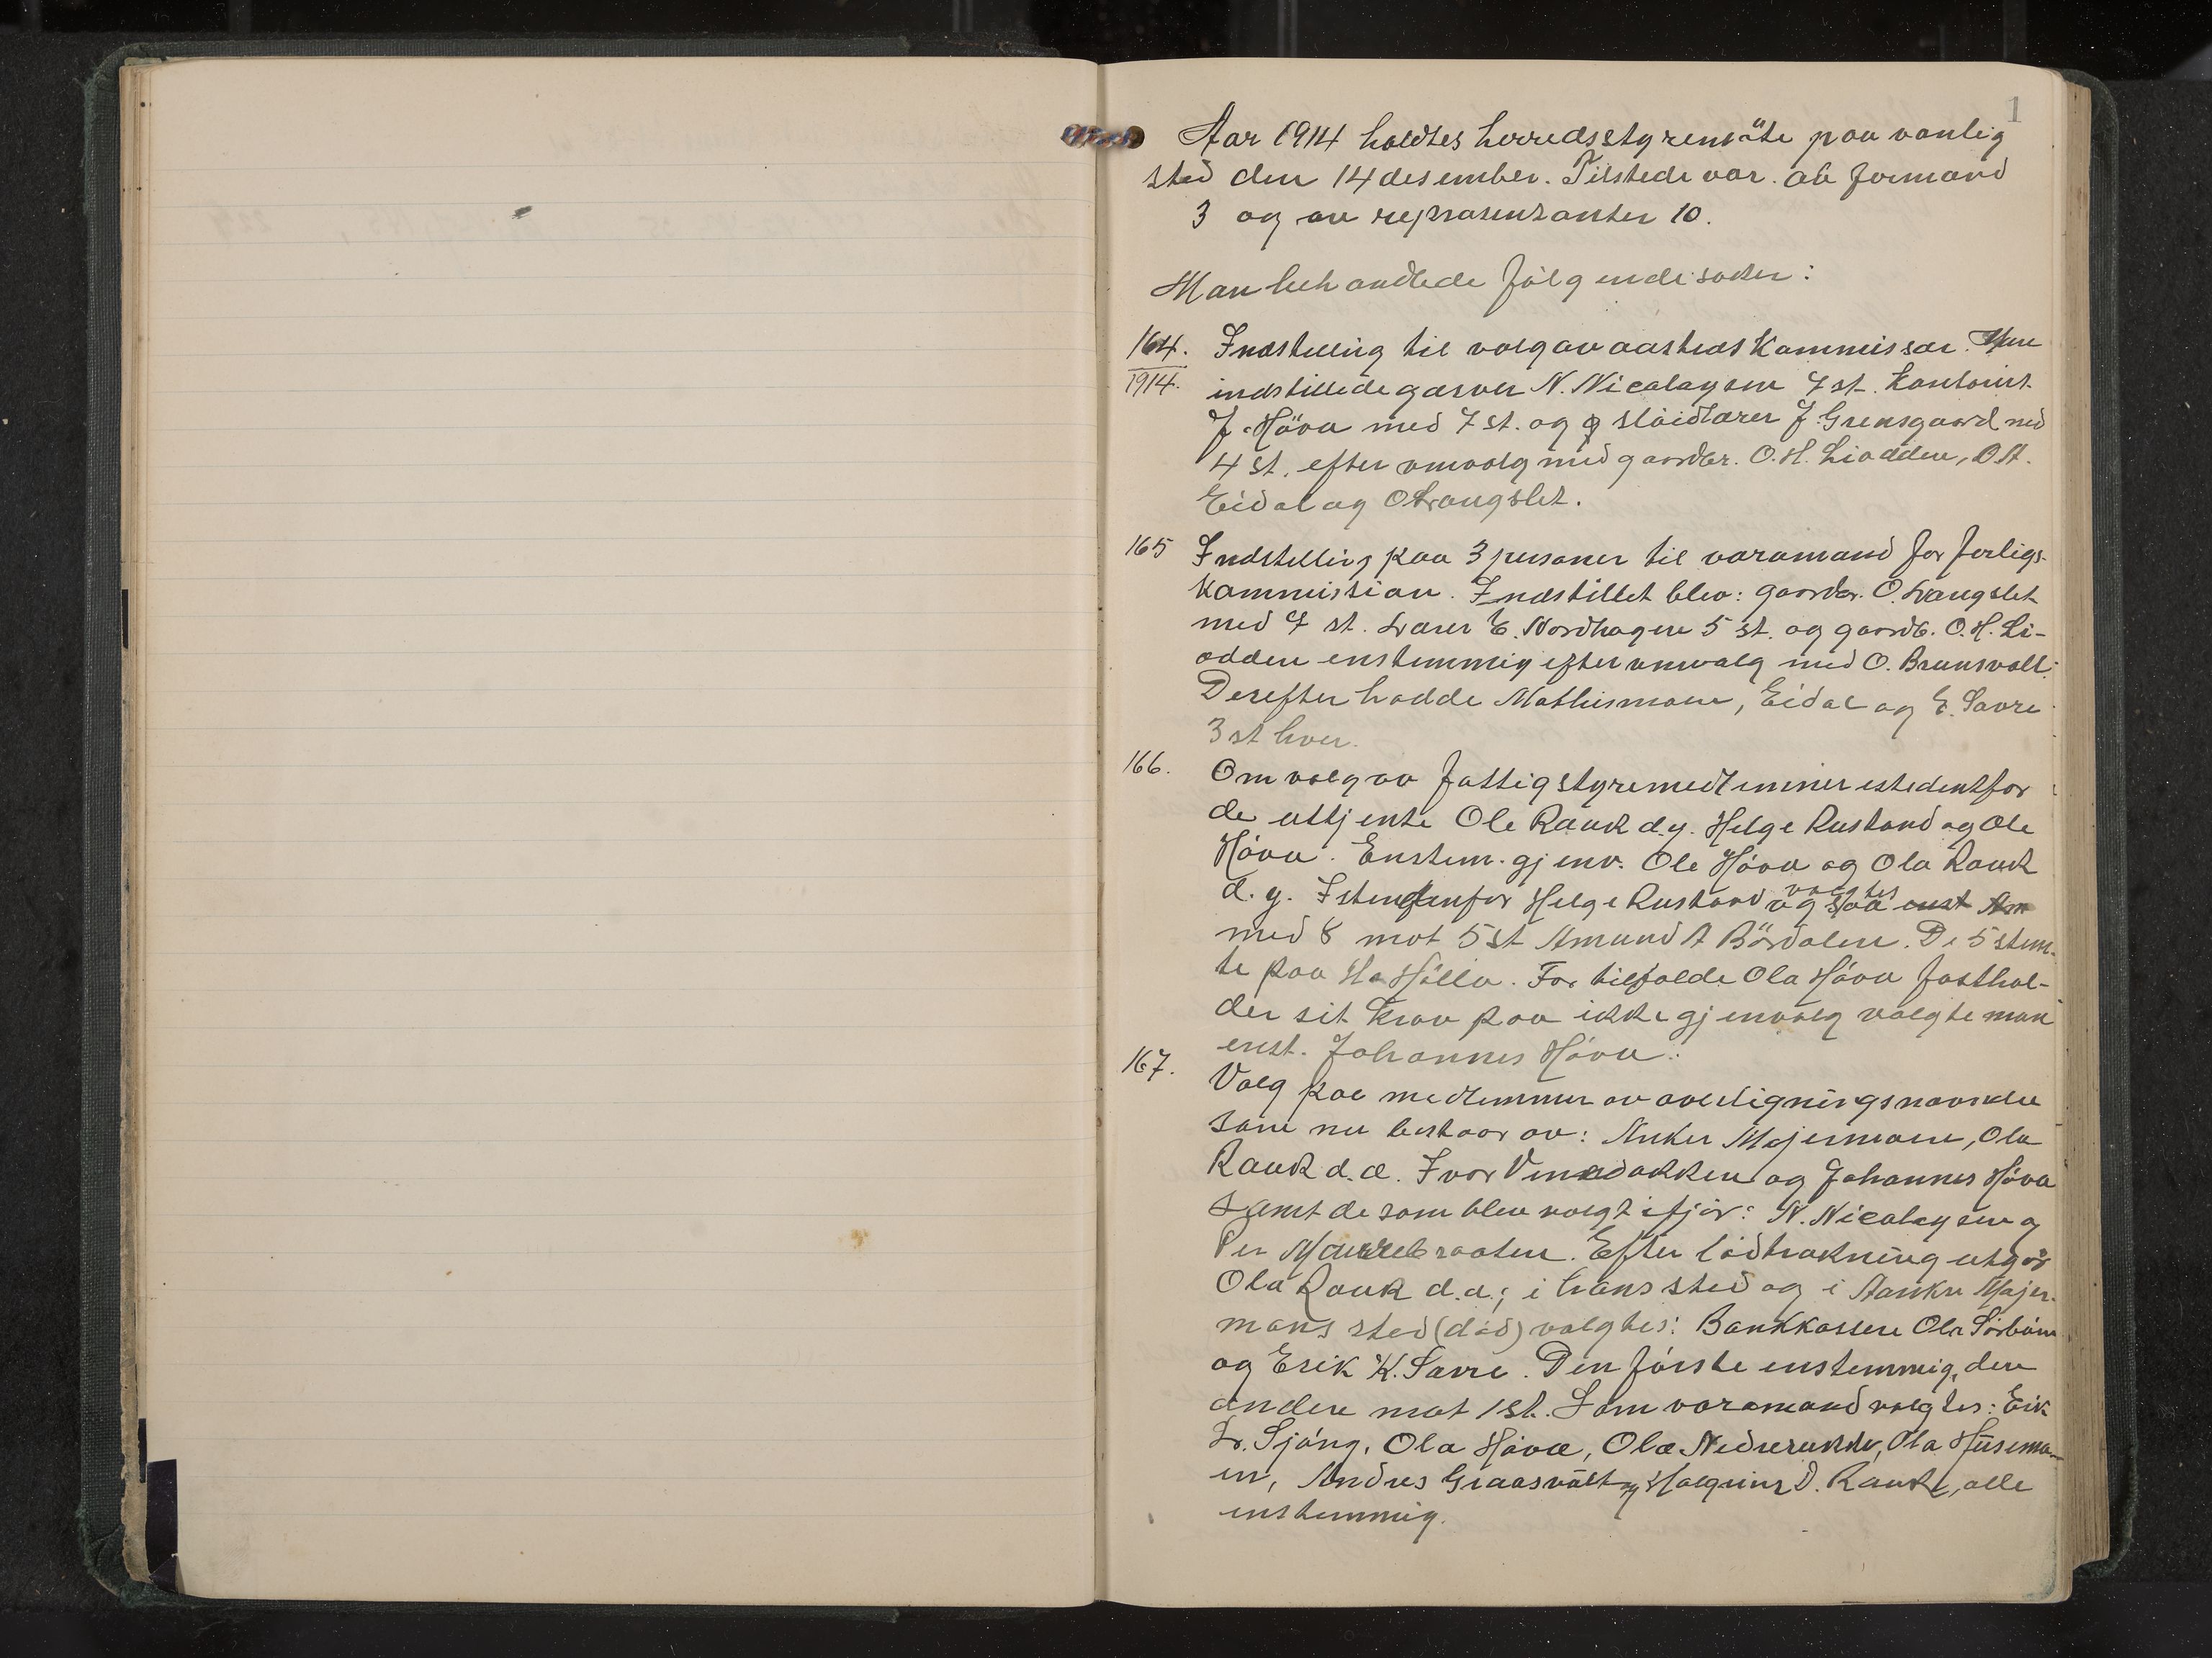 1
Aar 1914 holdtes herredsstyremöte paa vanlig
sted den 14 desember. Tilstede var. av formand
3 og av repræsentanter 10.
Man behandlede følgende saker:
164. Indstilling til valg av aasteds kommissær. Man
1914. indstillede garver N. Nicolaysen 7 st. kontorist
J. Höva med 7 st. og sløidlærer J. Grensgaard med
4 st. efter omvalg med gaardbr. O. H. Liodden, O A.
Eidal og O Trangslet.
165 Indstilling paa 3 personer til varamand for forligs-
kommission. Indstillet blev: gaardbr. O. Trangslet
med 7 st. Lærer E. Nordhagen 5 st. og gaardb. O. H. Li-
odden enstemmig efter omvalg med O. Brunsvoll.
Derefter hadde Mathismoen, Eidal og E. Savre
3 st hver.
166. Om valg av fattigstyremedlemmer istedentfor
de uttjente Ole Rauk d.y. Helge Rustand og Ole
Höva. Enstem. gjenv. Ole Höva og Ola Rauk
d. y. Istendenfor Helge Rustand valgtes ogsaa enst Am
med 8 mot 5 st Amund A Bördalen. De 5 stem-
te paa Ha Hölla. For tilfælde Ola Höva fasthol-
der sit krav paa ikke gjenvalg valgte man
enst. Johannes Höva.
167. Valg paa medlemmer av overligningsnævnden
som nu bestaar av: Anker Majermoen, Ola
Rauk d.æ. Ivor Vinadokken og Johannes Höva
samt de som blev valgt ifjor: N. Nicolaysen og
Per Maurebraaten. Efter lodtrækning utgår
Ola Rauk d.æ.; i hans sted og i Aanker Majer-
moens sted (död) valgtes: Bankkasserer Ola Sörböen
og Erik K. Savre. Den første enstemmig, den
anden mot 1 st. Som varamand valgtes: Erik
Tr. Sjöng, Ola Höva, Ola Nedrerukke, Ola Husemo-
en, Andres Graasvolt og Halgrim O. Rauk, alle
enstemmig.